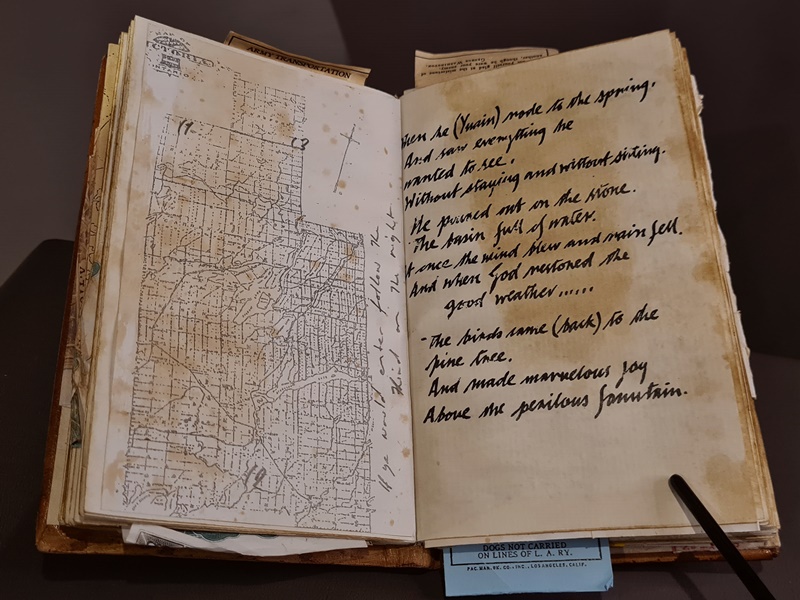 ARMY TRANSPORTATION
CTORIA
13
If ye would enter follow the
on the right
hen he (Ywain) rode to the spring.
And saw everything he
wanted to see.
Without staying and without sitting.
He poured out on the stone.
The basin full of water.
t once the wind blew and rain fell.
And when God restored the
good weather......
-The birds came (back) to the
pine tree.
And made marvelous joy
Above the perilous fountain.
DOGS NOT CARRIED
ON LINES OF L. A. RY.
PAC. MAN. RE. CO.-INC., LOS ANGELES, CALIF.